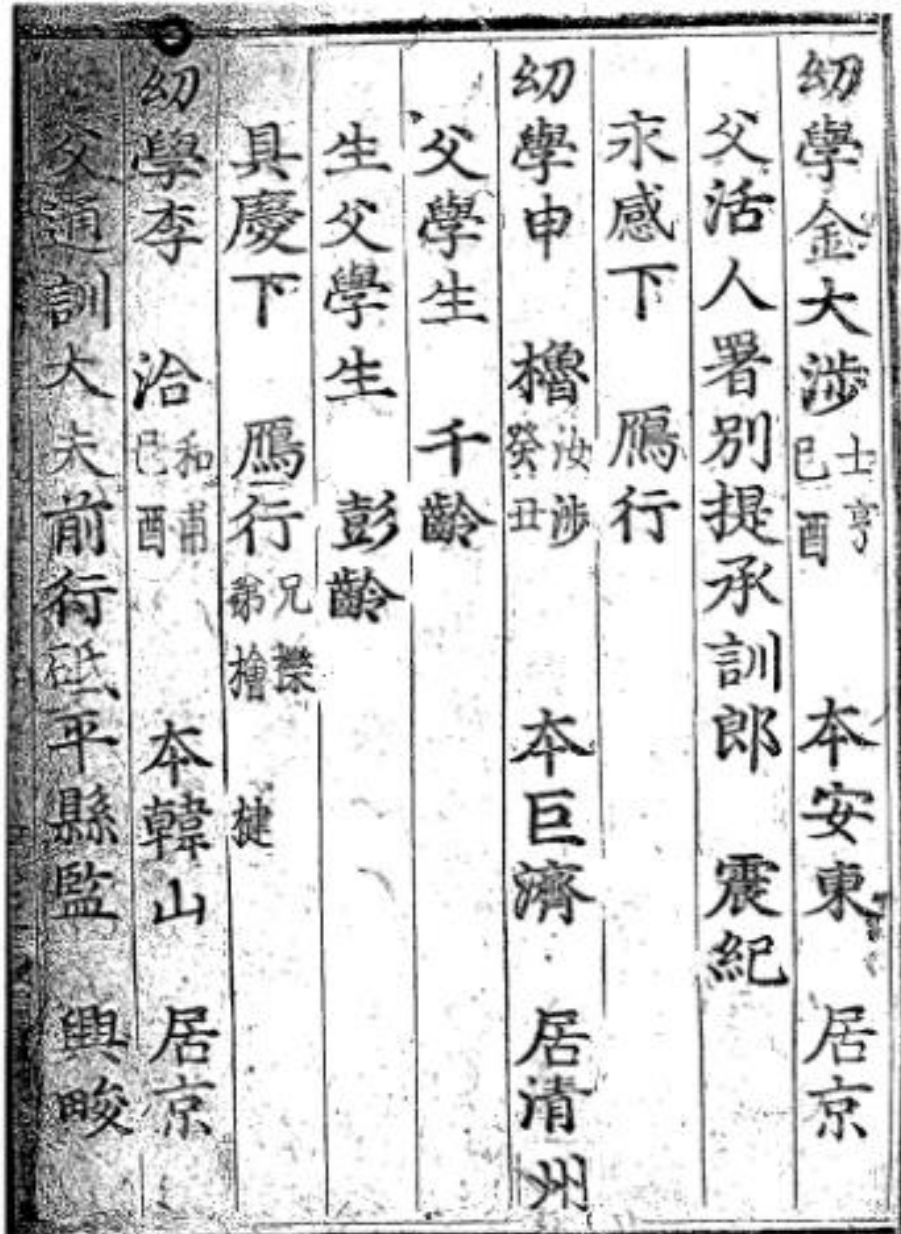 幼學金大涉 士亨己酉 本安東 居京
父活人署別提承訓郎 震紀
永感下 鴈行
幼學申 櫓 汝涉癸丑 本巨濟 居清州
父學生 千齡
生父學生 彭齡
具慶下 鴈行 兄㰂弟檜 揵
幼學李 洽 和甫己酉 本韓山 居京
父通訓大夫前行砥平縣監 興畯